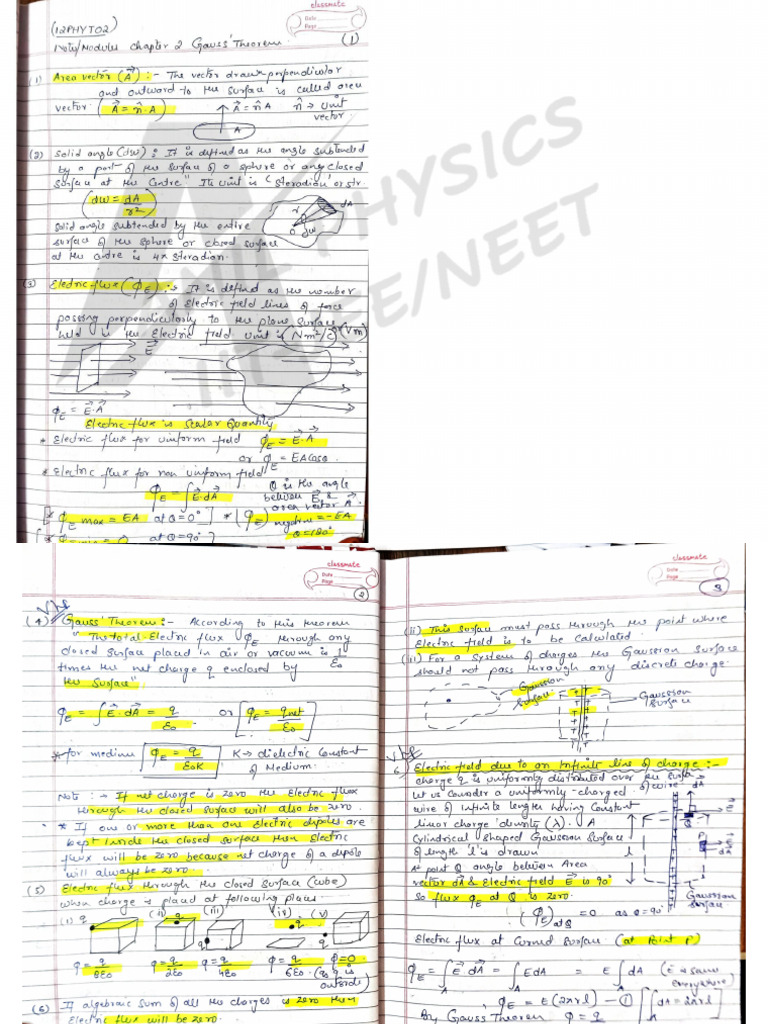 classmate
Date
Page
(12PHYT02)
Note/Modules Chapter 2 Gauss' Theorem (1)
(1) Area vector (A) :- The vector drawn perpendicular
and outward to the surface is called area
vector (A = n̂.A) A = n̂A n̂ → Unit
vector
A
(2) Solid angle (dw) : It is defined as the angle subtended
by a part of the surface of a sphere or any closed
surface at the Centre" Its unit is 'Steradian' or str.
(dw = dA/r²)
r dA
O dw
Solid angle subtended by the entire
surface of the sphere or closed surface
at the Centre is 4π Steradian.
(3) Electric flux (ϕE) :→ It is defined as the number
of electric field lines of force
passing perpendicularly to the plane surface
held in the Electric field. Unit is (Nm²/C) (Vm)
E
ϕE = E.A
Electric flux is Scalar Quantity
* Electric flux for uniform field ϕE = E.A
or ϕE = EA Cosθ
* Electric flux for non uniform field
ϕE = ∫E.dA
θ is the angle
between E &
area vector A.
[* ϕE max = EA at θ = 0°] * (ϕE) negative = -EA
θ = 180°
= 0 at θ = 90°]
PHYSICS
IIT-JEE/NEET
classmate
Date
Page
(2)
(4) Gauss' Theorem :- According to this theorem
"The total Electric flux ϕE through any
closed surface placed in air or vacuum is 1/ε0
times the net charge q enclosed by
the surface"
ϕE = ∫E.dA = q/ε0 or [ϕE = qnet/ε0]
* for medium [ϕE = q/ε0K] K → dielectric Constant
of Medium.
Note :→ If net charge is zero the Electric flux
through the closed surface will also be zero.
* If one or more than one electric dipoles are
kept inside the closed surface then Electric
flux will be zero because net charge of a dipole
will always be zero.
(5) Electric flux through the closed surface (cube)
when charge is placed at following places.
(i) q (ii) q (iii) (iv) (v)
q q q
ϕ = q/8ε0 ϕ = q/2ε0 ϕ = q/4ε0 ϕ = q/6ε0 ϕ = 0
(as q is
outside)
(6) If algebraic sum of all the charges is zero then
Electric flux will be zero.
classmate
Date
Page
3
(ii) This surface must pass through the point where
Electric field is to be Calculated.
(iii) For a System of charges the Gaussian Surface
should not pass through any discrete charge.
Gaussian
Surface
Gaussian
Surface
6. Electric field due to an Infinite line of charge :-
charge q is uniformly distributed over the surface
of wire
Let us Consider a uniformly charged
wire of infinite length having Constant
linear charge density (λ). A
Cylindrical shaped Gaussian Surface
of length 'l' is drawn
at point Q angle between Area
vector dA & Electric field E is 90°
So flux ϕE at Q is zero.
(ϕE) at Q = 0 as θ = 90°
dA
E
Q
P
E
dA
l
Gaussian
Surface
Electric flux at Curved Surface (at Point P)
ϕE = ∫E.dA = ∫EdA = E∫dA (E is same
everywhere)
ϕE = E(2πrl) - (1) [∫dA = 2πrl
By Gauss Theorem ϕ = q